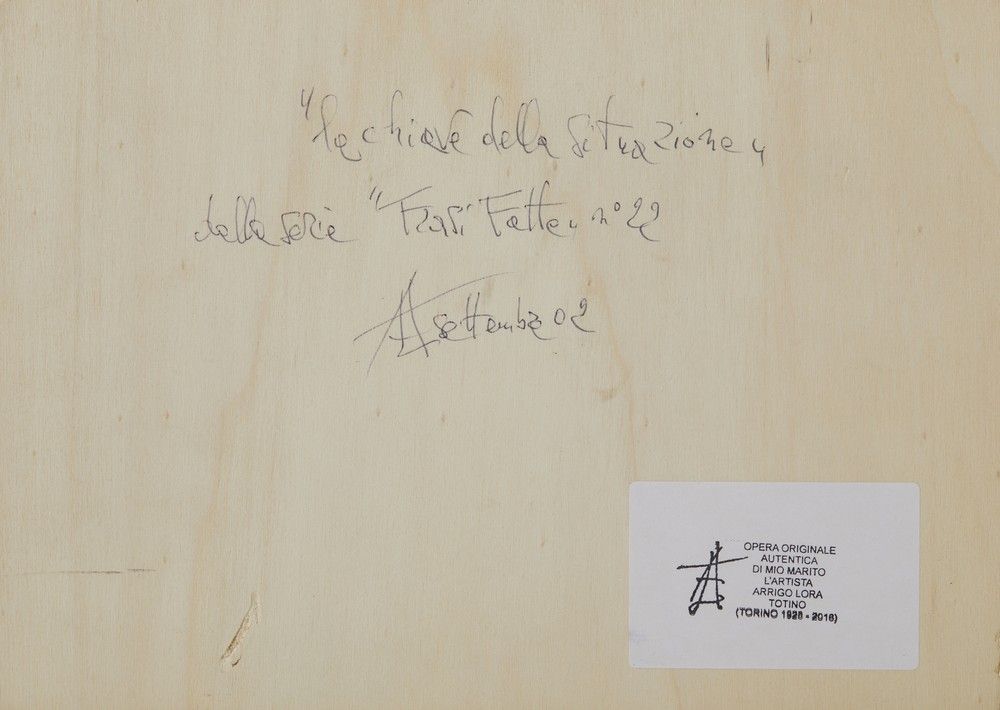 "la chiave della situazione"
della serie "Frasi Fatte" n° 22
settembre 02
OPERA ORIGINALE
AUTENTICA
DI MIO MARITO
L'ARTISTA
ARRIGO LORA
TOTINO
(TORINO 1928 - 2016)